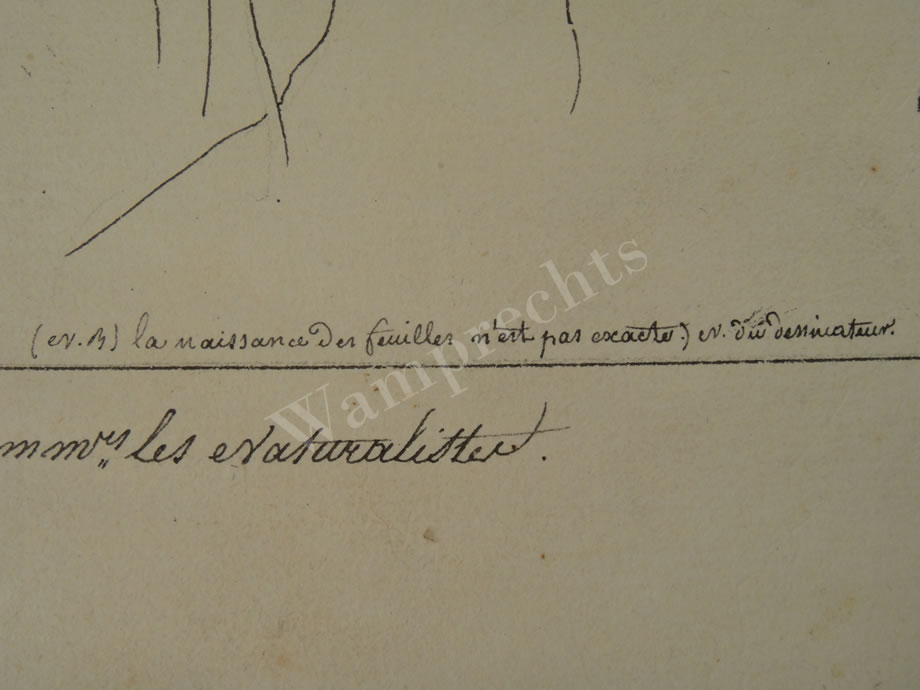 (N.B) la naissance des feuilles n'est pas exacte.) N. du dessinateur.
mmrs les Naturalistes.
Wamprechts